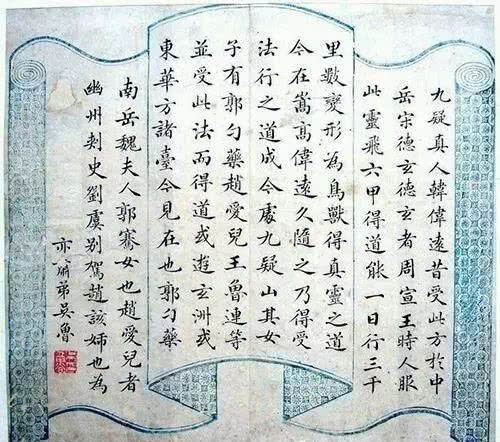 九疑真人韓偉遠昔受此方於中
岳宋德玄德玄者周宣王時人服
此靈飛六甲得道能一日行三千
里數變形為鳥獸得真靈之道
今在嵩高偉遠久隨之乃得受
法行之道成今處九疑山其女
子有郭勺藥趙愛兒王魯連等
並受此法而得道或遊玄洲或
東華方諸臺今見在也郭勺藥
南岳魏夫人郭騫女也趙愛兒者
幽州刺史劉虞別駕趙該姊也為
弟吳魯